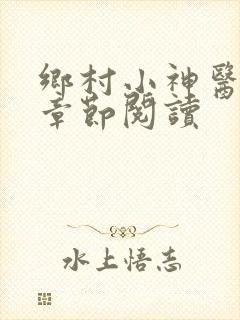 鄉村小神醫
章節閱讀
水上悟志